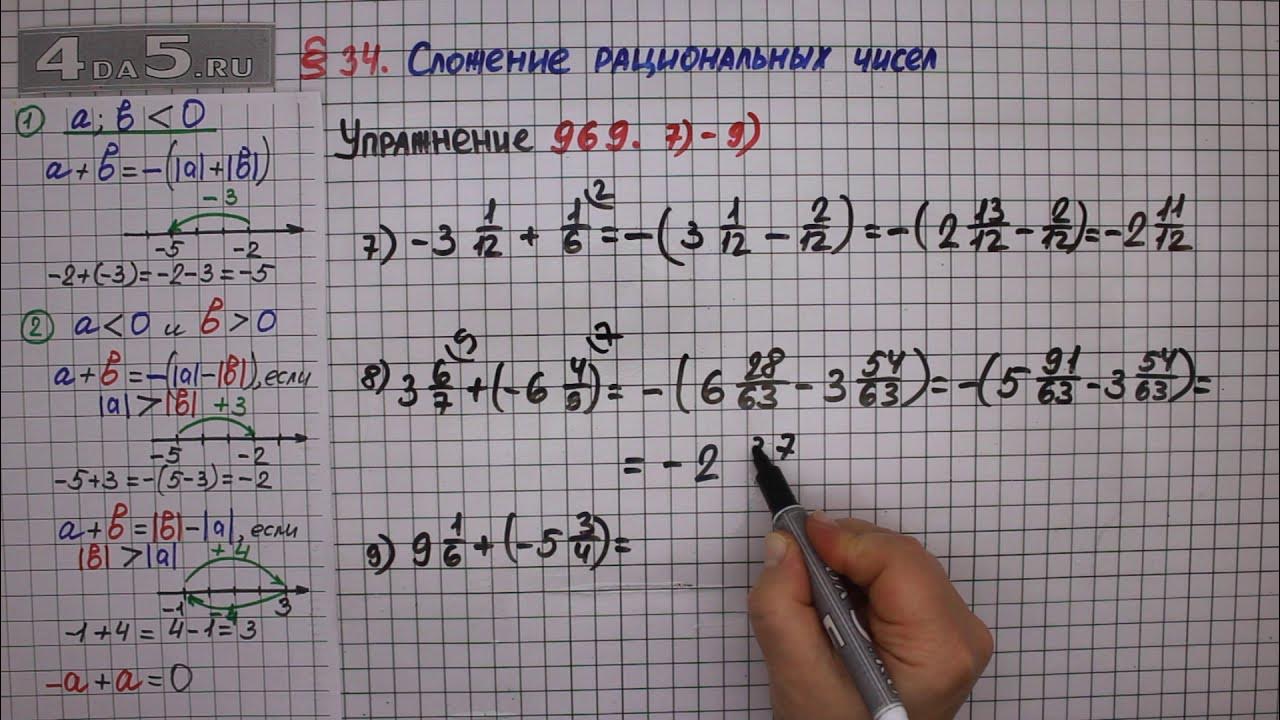 4ДА5.RU
§ 34. Сложение рациональных чисел
① a; b < 0
a + b = -(|a| + |b|)
-3
-5 -2
-2+(-3)=-2-3=-5
② a < 0 и b > 0
a + b = -(|a| - |b|), если
|a| > |b| +3
-5 -2
-5+3=-(5-3)=-2
a + b = |b| - |a|, если
|b| > |a| +4
-1 -4 3
-1+4 = 4-1 = 3
-a + a = 0
Упражнение 969. 7)-9)
7) -3 1/12 + 1/6 ⁽² = -(3 1/12 - 2/12) = -(2 13/12 - 2/12) = -2 11/12
8) 3 6/7 ⁽⁹ + (-6 4/9 ⁽⁷) = -(6 28/63 - 3 54/63) = -(5 91/63 - 3 54/63) =
= -2 37
9) 9 1/6 + (-5 3/4) =